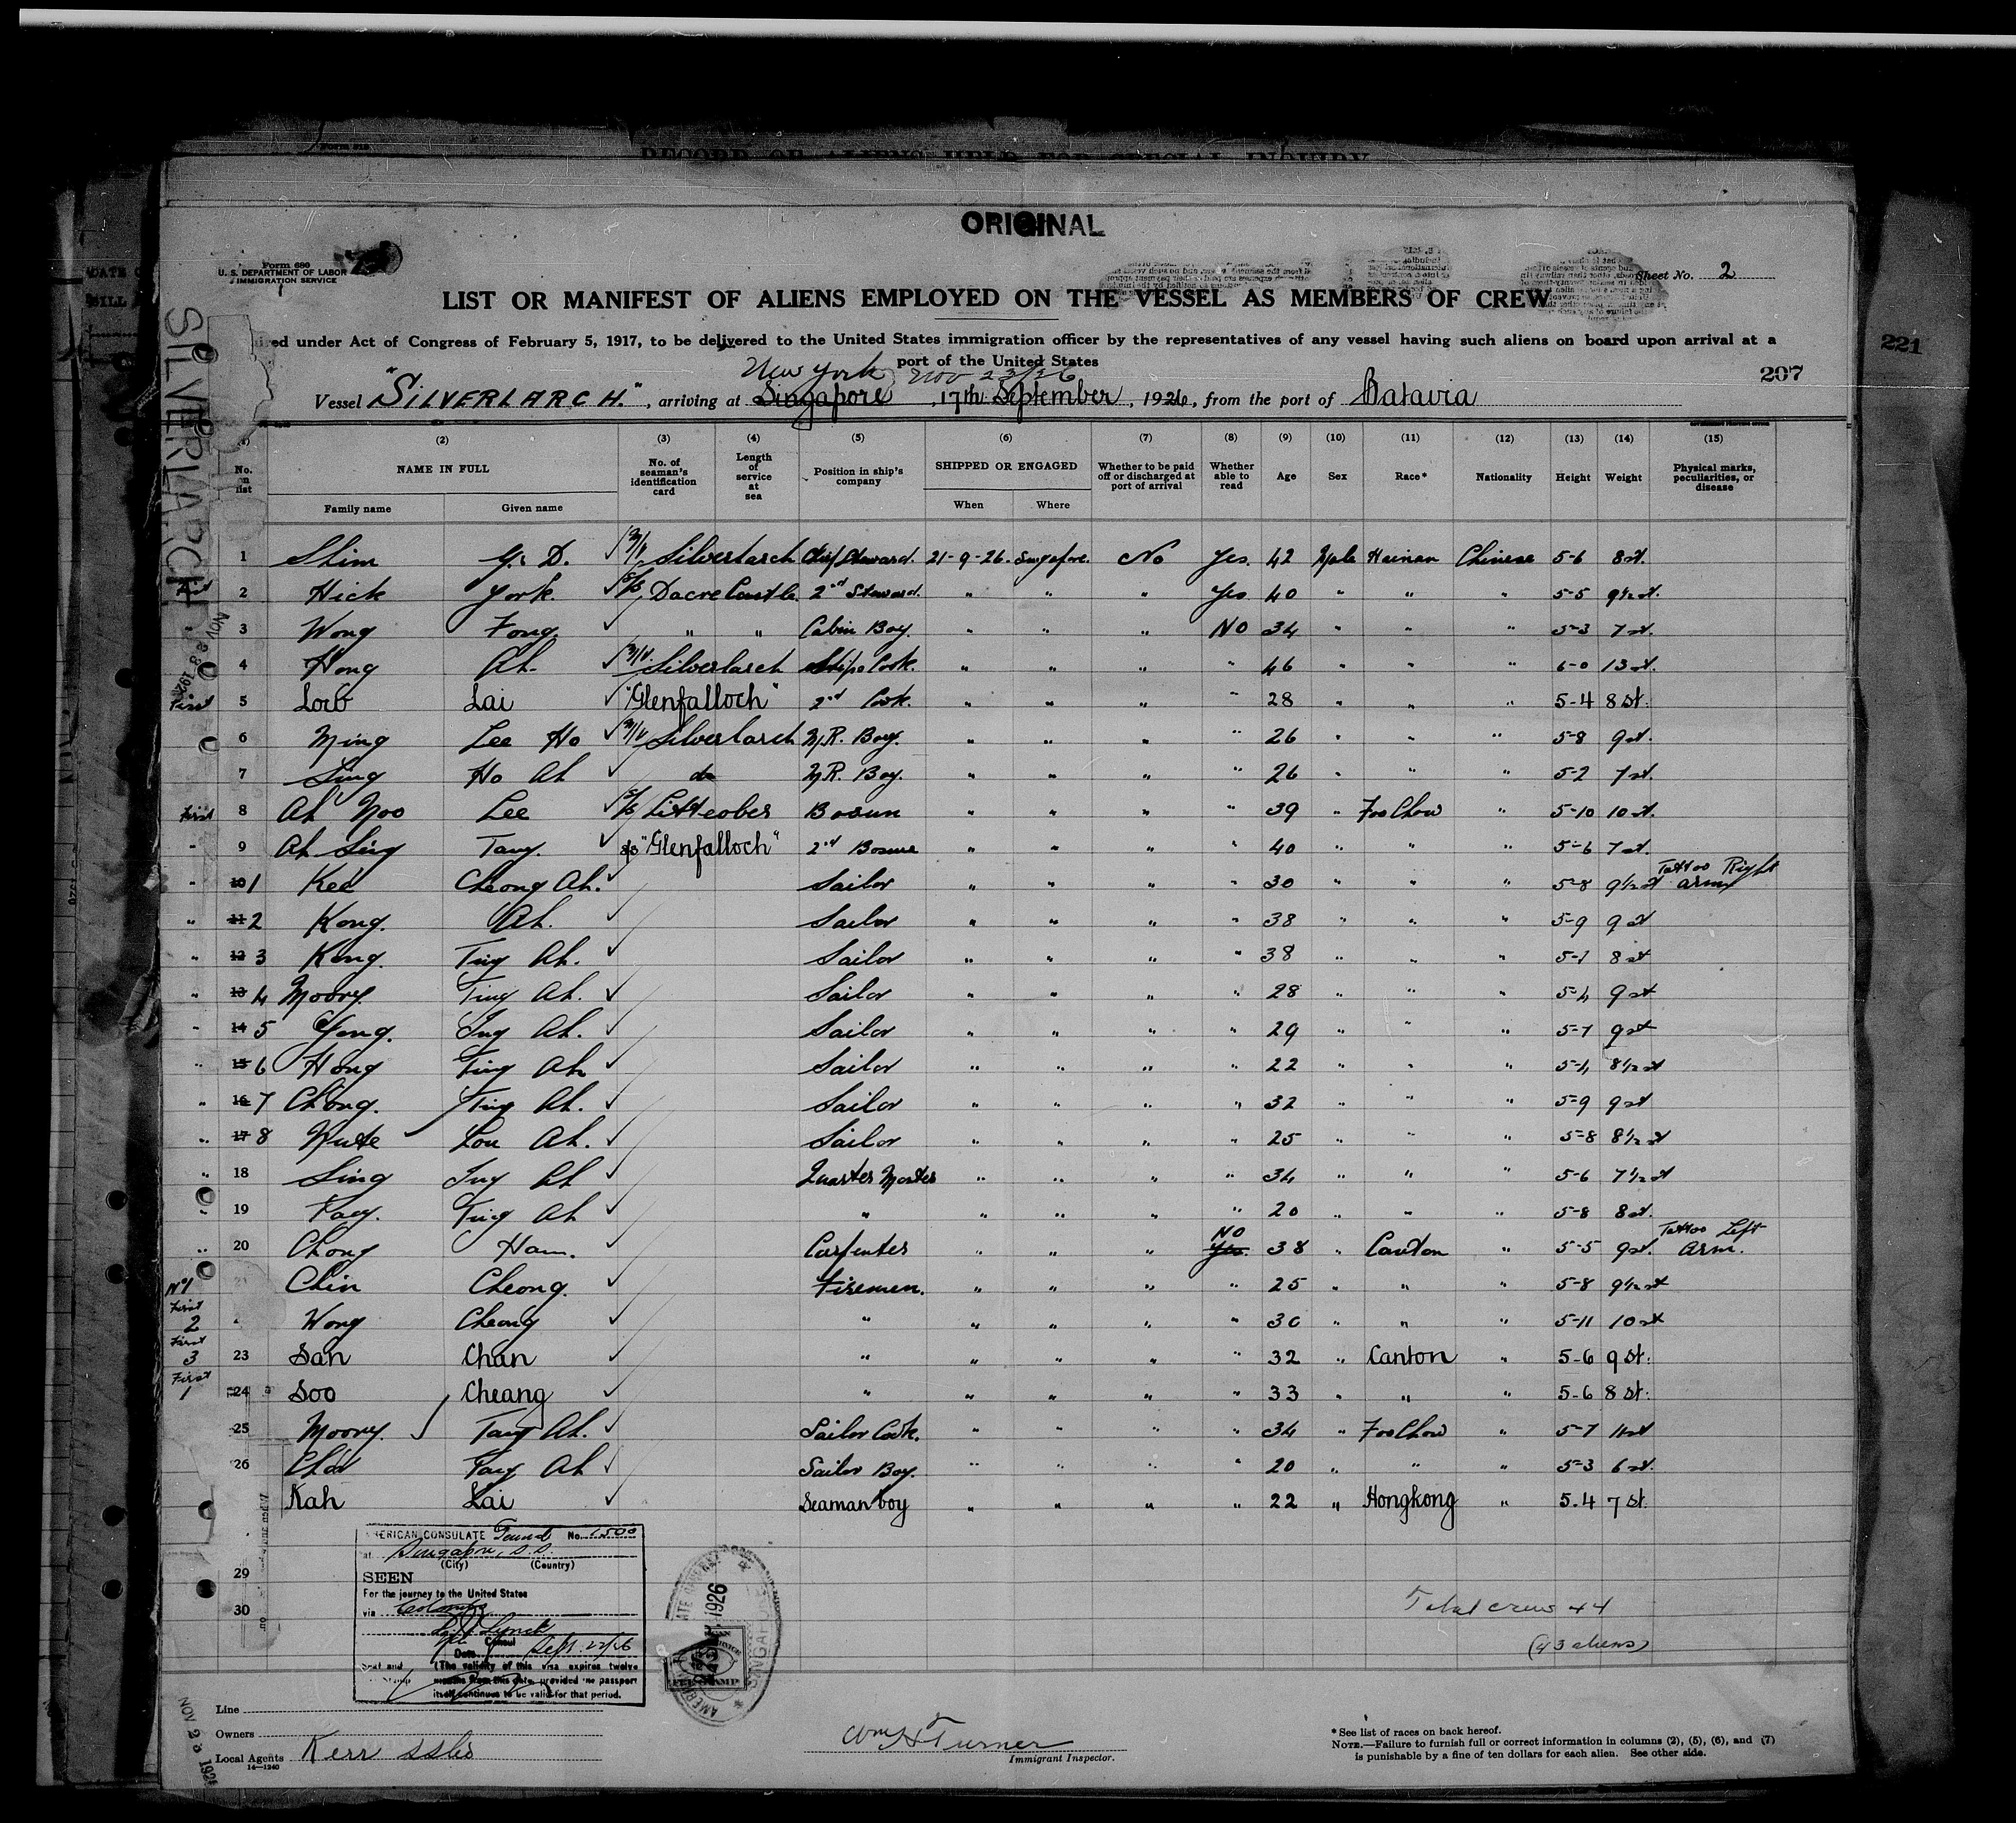 RECORD OF ALIENS HELD FOR SPECIAL INQUIRY
ORIGINAL
Form 680
U. S. DEPARTMENT OF LABOR
IMMIGRATION SERVICE
Sheet No. 2
LIST OR MANIFEST OF ALIENS EMPLOYED ON THE VESSEL AS MEMBERS OF CREW
under Act of Congress of February 5, 1917, to be delivered to the United States immigration officer by the representatives of any vessel having such aliens on board upon arrival at a
port of the United States
221
207
New York Nov 23/26
Vessel "SILVERLARCH." , arriving at Singapore , 17th September , 1926, from the port of Batavia
SILVERLARCH
(1) (2) (3) (4) (5) (6) (7) (8) (9) (10) (11) (12) (13) (14) (15)
No. on list NAME IN FULL No. of seaman's identification card Length of service at sea Position in ship's company SHIPPED OR ENGAGED Whether to be paid off or discharged at port of arrival Whether able to read Age Sex Race* Nationality Height Weight Physical marks, peculiarities, or disease
Family name Given name When Where
1 Shim Y. D. M/V Silverlarch Chief Steward. 21-9-26. Singapore. No Yes. 42 Male Hainan Chinese 5-6 8st.
2 Hick York. S/S Dacre Castle 2nd Steward. " " " Yes 40 " " " 5-5 9½st.
3 Wong Fong. " " Cabin Boy. " " " NO 34 " " " 5-3 7st.
4 Hong Ah. M/V. Silverlarch Ships Cook. " " " " 46 " " " 6-0 13st.
First 5 Loco Lai "Glenfalloch" 2nd Cook. " " " " 28 " " " 5-4 8st.
6 Ming Lee Ho M/V Silverlarch M.R. Boy. " " " " 26 " " " 5-8 9st.
7 Sing Ho Ah do M.R. Boy. " " " " 26 " " " 5-2 7st.
First 8 Ah Moo Lee S/S Bosun " " " " 39 " FooChow " 5-10 10st.
" 9 Ah Sing Tang. S/S "Glenfalloch" 2nd Bosun " " " " 40 " " " 5-6 7st.
" 10 1 Kee Cheong Ah. Sailor " " " " 30 " " " 5-8 9½st Tattoo Right arm
" 11 2 Kong. Ah. Sailor " " " " 38 " " " 5-9 9st
" 12 3 Kong. Ting Ah. Sailor " " " " 38 " " " 5-7 8st
" 13 4 Moory. Ting Ah. Sailor " " " " 28 " " " 5-4 9st
" 14 5 Yong. Ing Ah. Sailor " " " " 29 " " " 5-7 9st
" 15 6 Hong Ting Ah Sailor " " " " 22 " " " 5-4 8½st
" 16 7 Chong. Ting Ah. Sailor " " " " 32 " " " 5-9 9st
" 17 8 Lou Ah. Sailor " " " " 25 " " " 5-8 8½st
" 18 Sing Ing Ah Quarter Master " " " " 34 " " " 5-6 7½st
" 19 Ting Ah " " " " " 20 " " " 5-8 8st.
" 20 Chong Ham. Carpenter " " " NO Yes. 38 " Canton " 5-5 9st. Tattoo Left Arm.
No1 Chin Cheong. Firemen. " " " " 25 " " " 5-8 9½st
First 2 Wong Cheong " " " " " 30 " " " 5-11 10st
First 3 23 San Chan " " " " " 32 " Canton " 5-6 9st.
First 1 24 Soo Cheang " " " " " 33 " " " 5-6 8st.
25 Moory. Tang Ah. Sailor Cook. " " " " 34 " FooChow " 5-7 11st
26 Choi Tang Ah Sailor Boy. " " " " 20 " " " 5-3 6st.
Kah Lai Seaman boy " " " " 22 " Hongkong " 5.4 7st.
29
30
AMERICAN CONSULATE General No. 1500
at Singapore, S.S.
(City) (Country)
SEEN
For the journey to the United States
via Colombo
Lynch
Consul
Date Sept. 22/26
Seal and Stamp
(The validity of this visa expires twelve
months from this date, provided the passport
itself continues to be valid for that period.
1926
SINGAPORE
FEE STAMP
Total crew 44
(43 aliens)
Line
Owners
Local Agents Kerr SS Co
14—1240
Wm H Turner
Immigrant Inspector.
* See list of races on back hereof.
NOTE.—Failure to furnish full or correct information in columns (2), (5), (6), and (7)
is punishable by a fine of ten dollars for each alien. See other side.